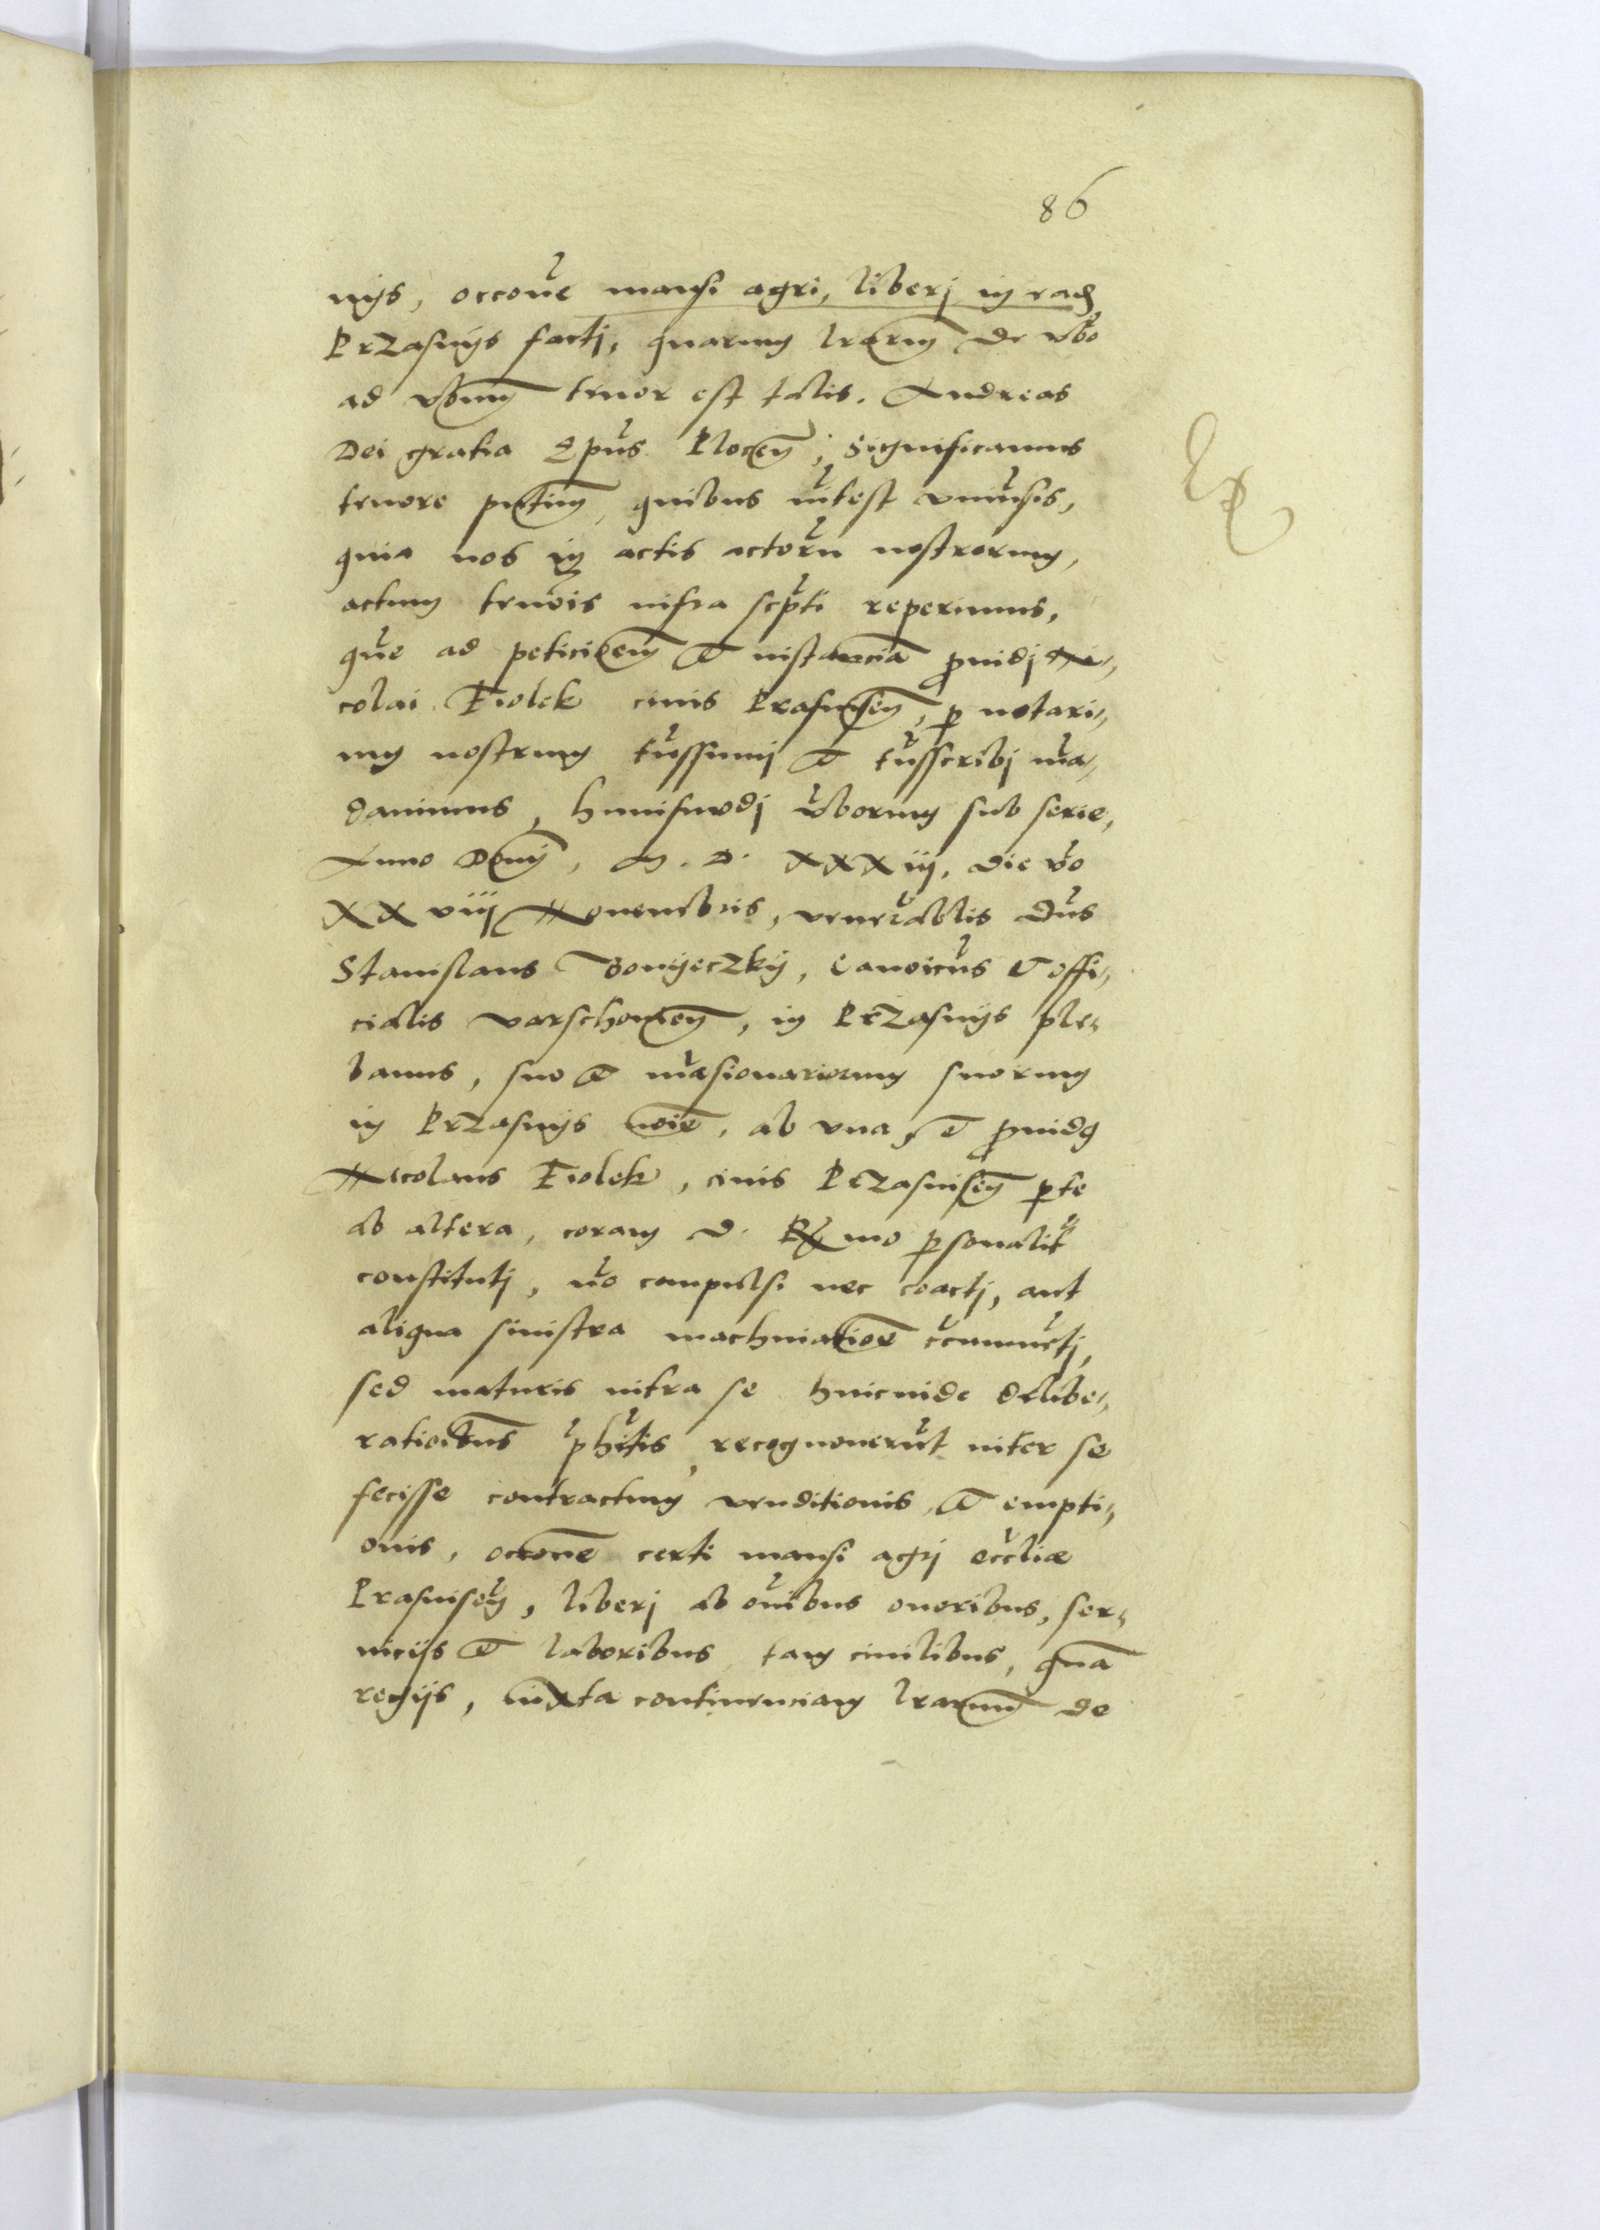 86
nijs, occone mansi agri, liberj in ead
Przasnijs factj, quarum lrarum de vbo
ad vbum tenor est talis. Andreas
Dei gratia Epus Plocen, Significamus
tenore pntium, quibus intest vniusis,
quia nos in actis actoru nostrorum,
actum tenois infra scpti reperimus,
que ad peticioem et instancia prouidj Ni„
colai Fiolek ciuis Prasnysen, p notari„
um nostrum tussumj et tusscribj ma„
dauimus, huiusmodj vborum sub serie,
Anno Domj, M. D. XXXiij, die vo
XXviij Nouembris, venerablis dus
Stanislaus Bonyeczkij, Canoicus et offi„
cialis varschouien, in Przasnijs ple„
banus, suo et masionariorum suorum
in Przasnijs noie, ab vna, et prouidq
Nicolaus Fiolek, ciuis Przasnisen pte
ab altera, coram d. Rmo psonalit
constitutj, no compulsi nec coactj, aut
aliqua sinistra machinatioe ccumuctj,
sed maturis intra se hincinde delibe„
ratioibus phitis, recognouerut inter se
fecisse contractum venditionis, et empti„
onis, occone certi mansi agrj eccliæ
Prasnisen, liberj ab oibus oneribus, ser„
uicijs et laboribus tam ciuilibus, qua
regijs, iuxta continenciam lrarum de